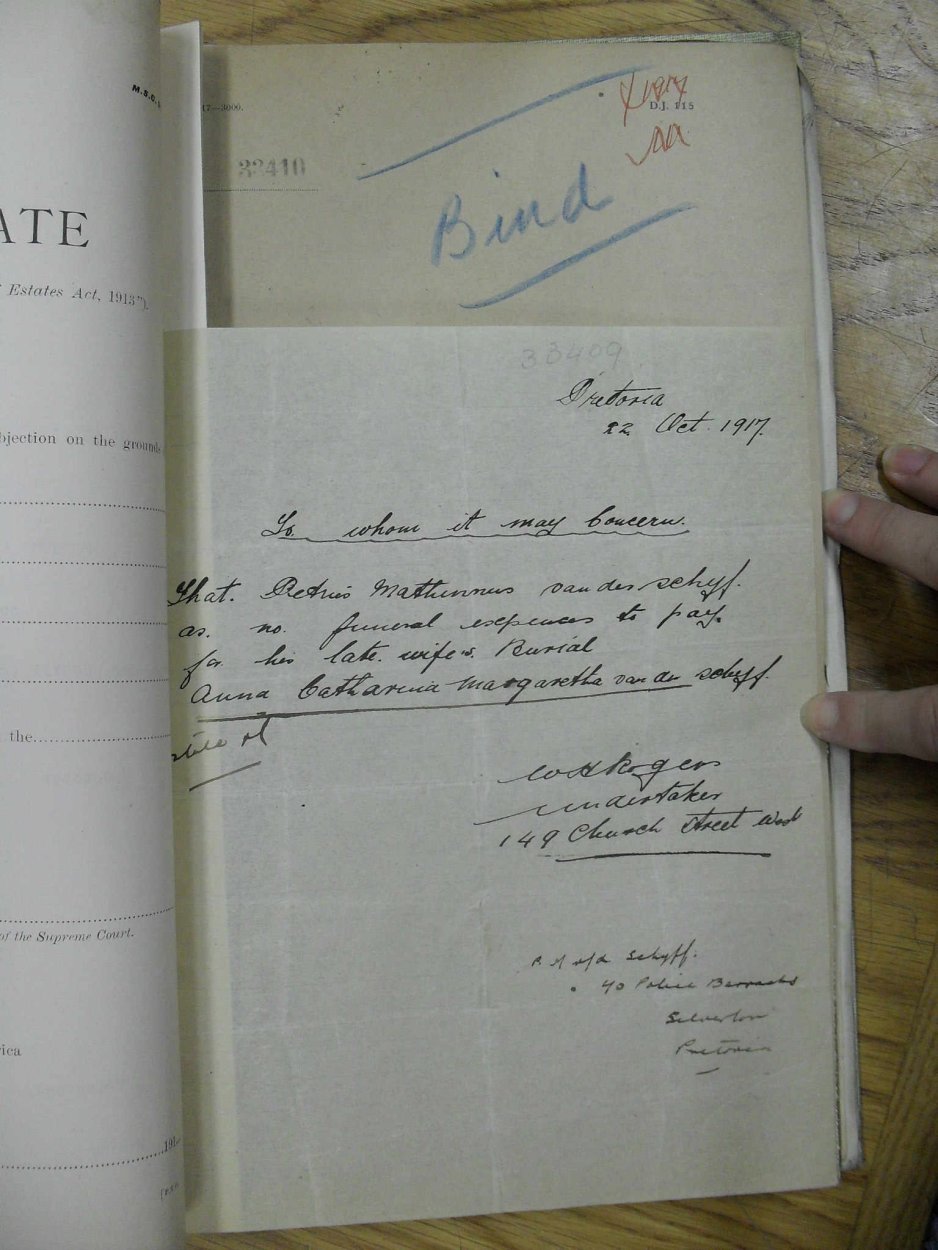 M.S.O.
ATE
Estates Act, 1913").
bjection on the grounds
the
of the Supreme Court.
ica
191
17—3000.
D.J. 115
33410
Bind
33409
Pretoria
22 Oct. 1917.
To whom it may Concern.
That. Petrus Mathinnus van der schyff.
as. no. funeral expences to pay.
for his late. wife's. Burial
Anna Catharina Margaretha van der schyff.
W H Rogers
undertaker
149 Church Street West
v/d Schyff.
40 Police Barracks
Silverton
Pretoria